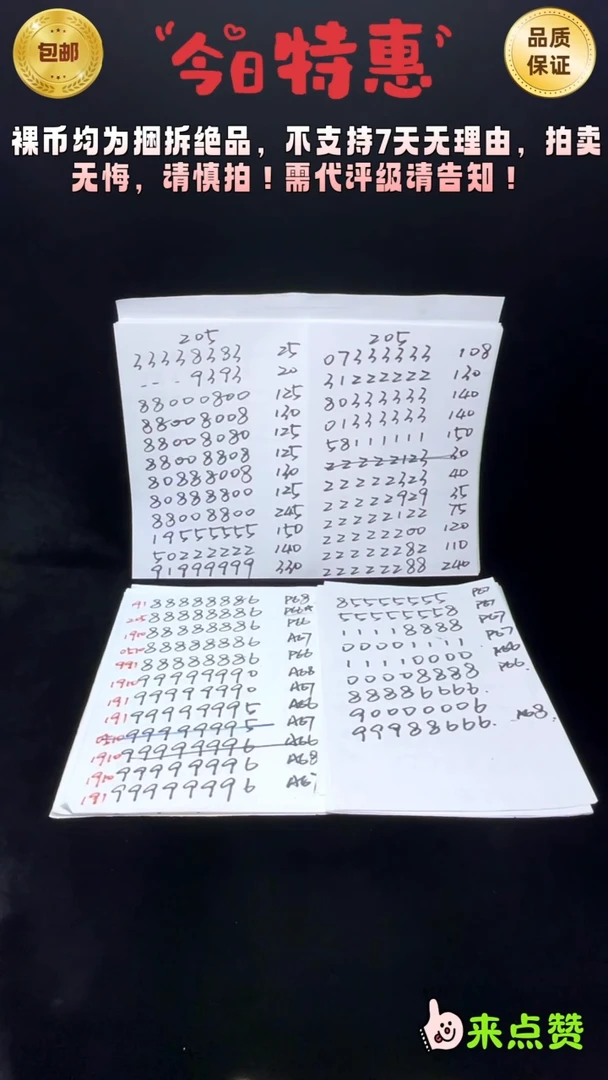 包邮
“今日特惠”
品质
保证
裸币均为捆拆绝品，不支持7天无理由，拍卖
无悔，请慎拍！需代评级请告知！
205
33338383 25
---9393 20
88000800 125
88008008 130
88008080 125
88008808 125
80888008 130
80888800 125
88008800 245
19555555 150
50222222 140
91999999 330
205
07333333 108
31222222 130
80333333 140
01333333 140
58111111 150
22222123 30
22222323 40
22222929 35
22222122 75
22222200 120
22222282 110
22222288 240
191 88888886 P68
205 88888886 P66★
1980 88888886 P66
0510 88888886 A67
991 88888886 P66
1910 99999990 A68
191 99999990 A67
191 99999995 A66
0510 99999995 A67
1910 99999996 A66
1910 99999996 A68
191 99999996 A67
85555555 P67
55555558 P67
11118888 P67
00001111 P67
11110000 A66
00008888 P66
88886666.
90000006
99988666. A68.
来点赞